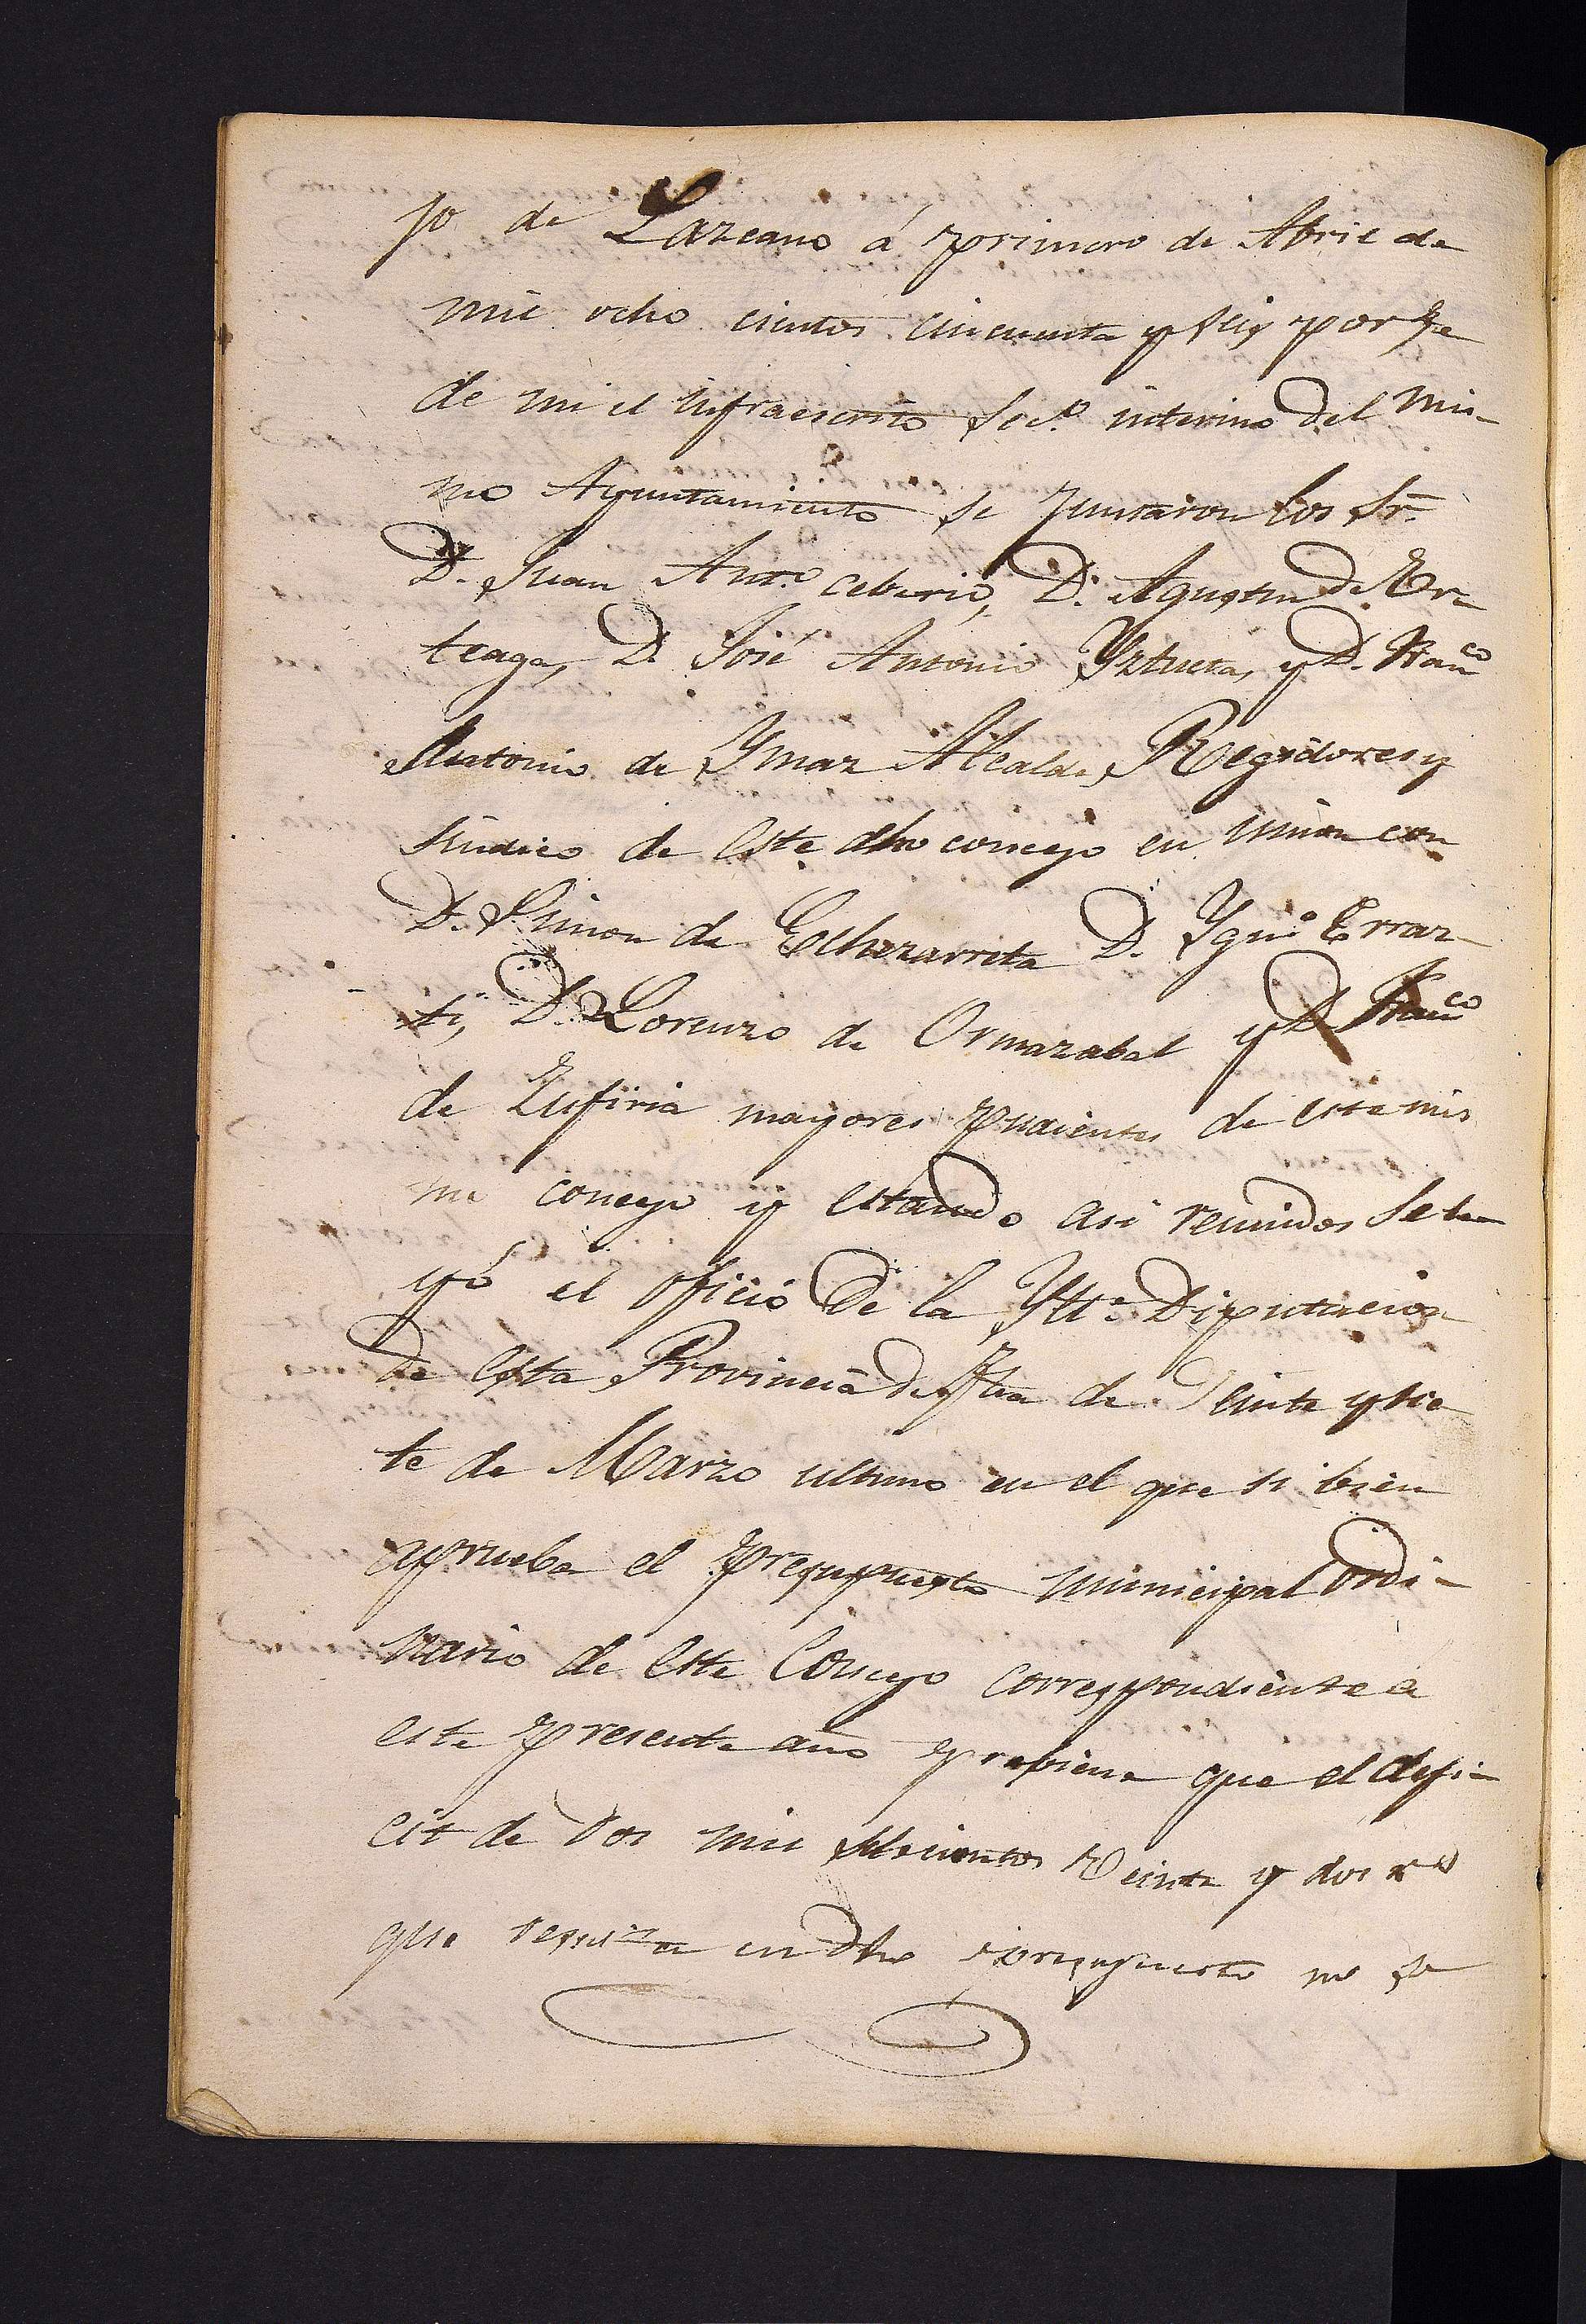 jo de Lazcano á primero de Abril de
mil ocho cientos cincuenta y seis por fe
de mi el infraescrito Sec.º interino del mis-
mo Ayuntamiento se juntaron los Sr.
D. Juan Ant.º Ceberio, D. Agustin de Ur-
teaga, D. José Antonio Yztueta, y D. Fran.co
Antonio de Ymaz Alcalde, Regidores y
Sindico de este dho concejo en union con
D. Simon de Echezarreta D. Ygn.º Erraz-
ti, D. Lorenzo de Ormazabal y D. Fran.co
de Zufiria mayores pudientes de este mis
mo concejo y estando asi reunidos se le-
yó el oficio de la Ylt.e Diputacion
de esta Provincia de fha de Veinte y sie
te de Marzo ultimo en el que si bien
aprueba el presupuesto municipal ordi-
nario de este Concejo correspondiente a
este presente año previene que el defi-
cit de dos mil Veinte y dos r.s
que resulta en dho presupuesto no se